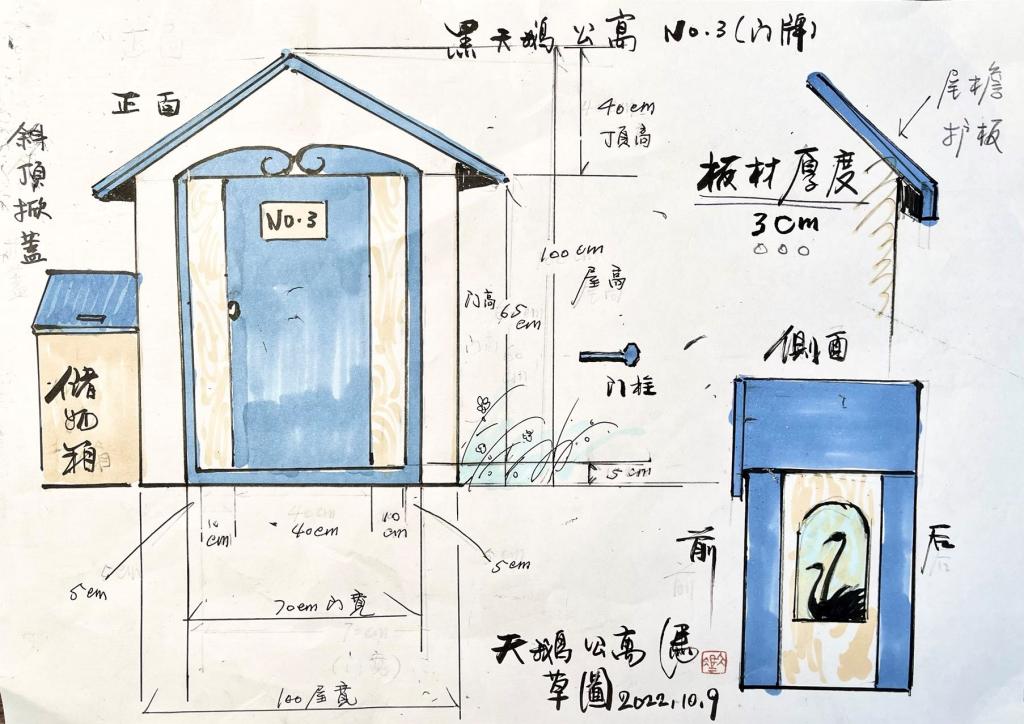 黑天鵝公寓 No.3(门牌)
正面
40cm
頂高
尾檐
护板
斜
頂
掀
蓋
板材厚度
3cm
No.3
100cm
屋高
门高
65
cm
側面
门栓
储
物
箱
5cm
10
cm
40cm
10
cm
前
后
5cm
5cm
70cm 门寬
天鵝公寓
草圖 2022.10.9
100屋寬